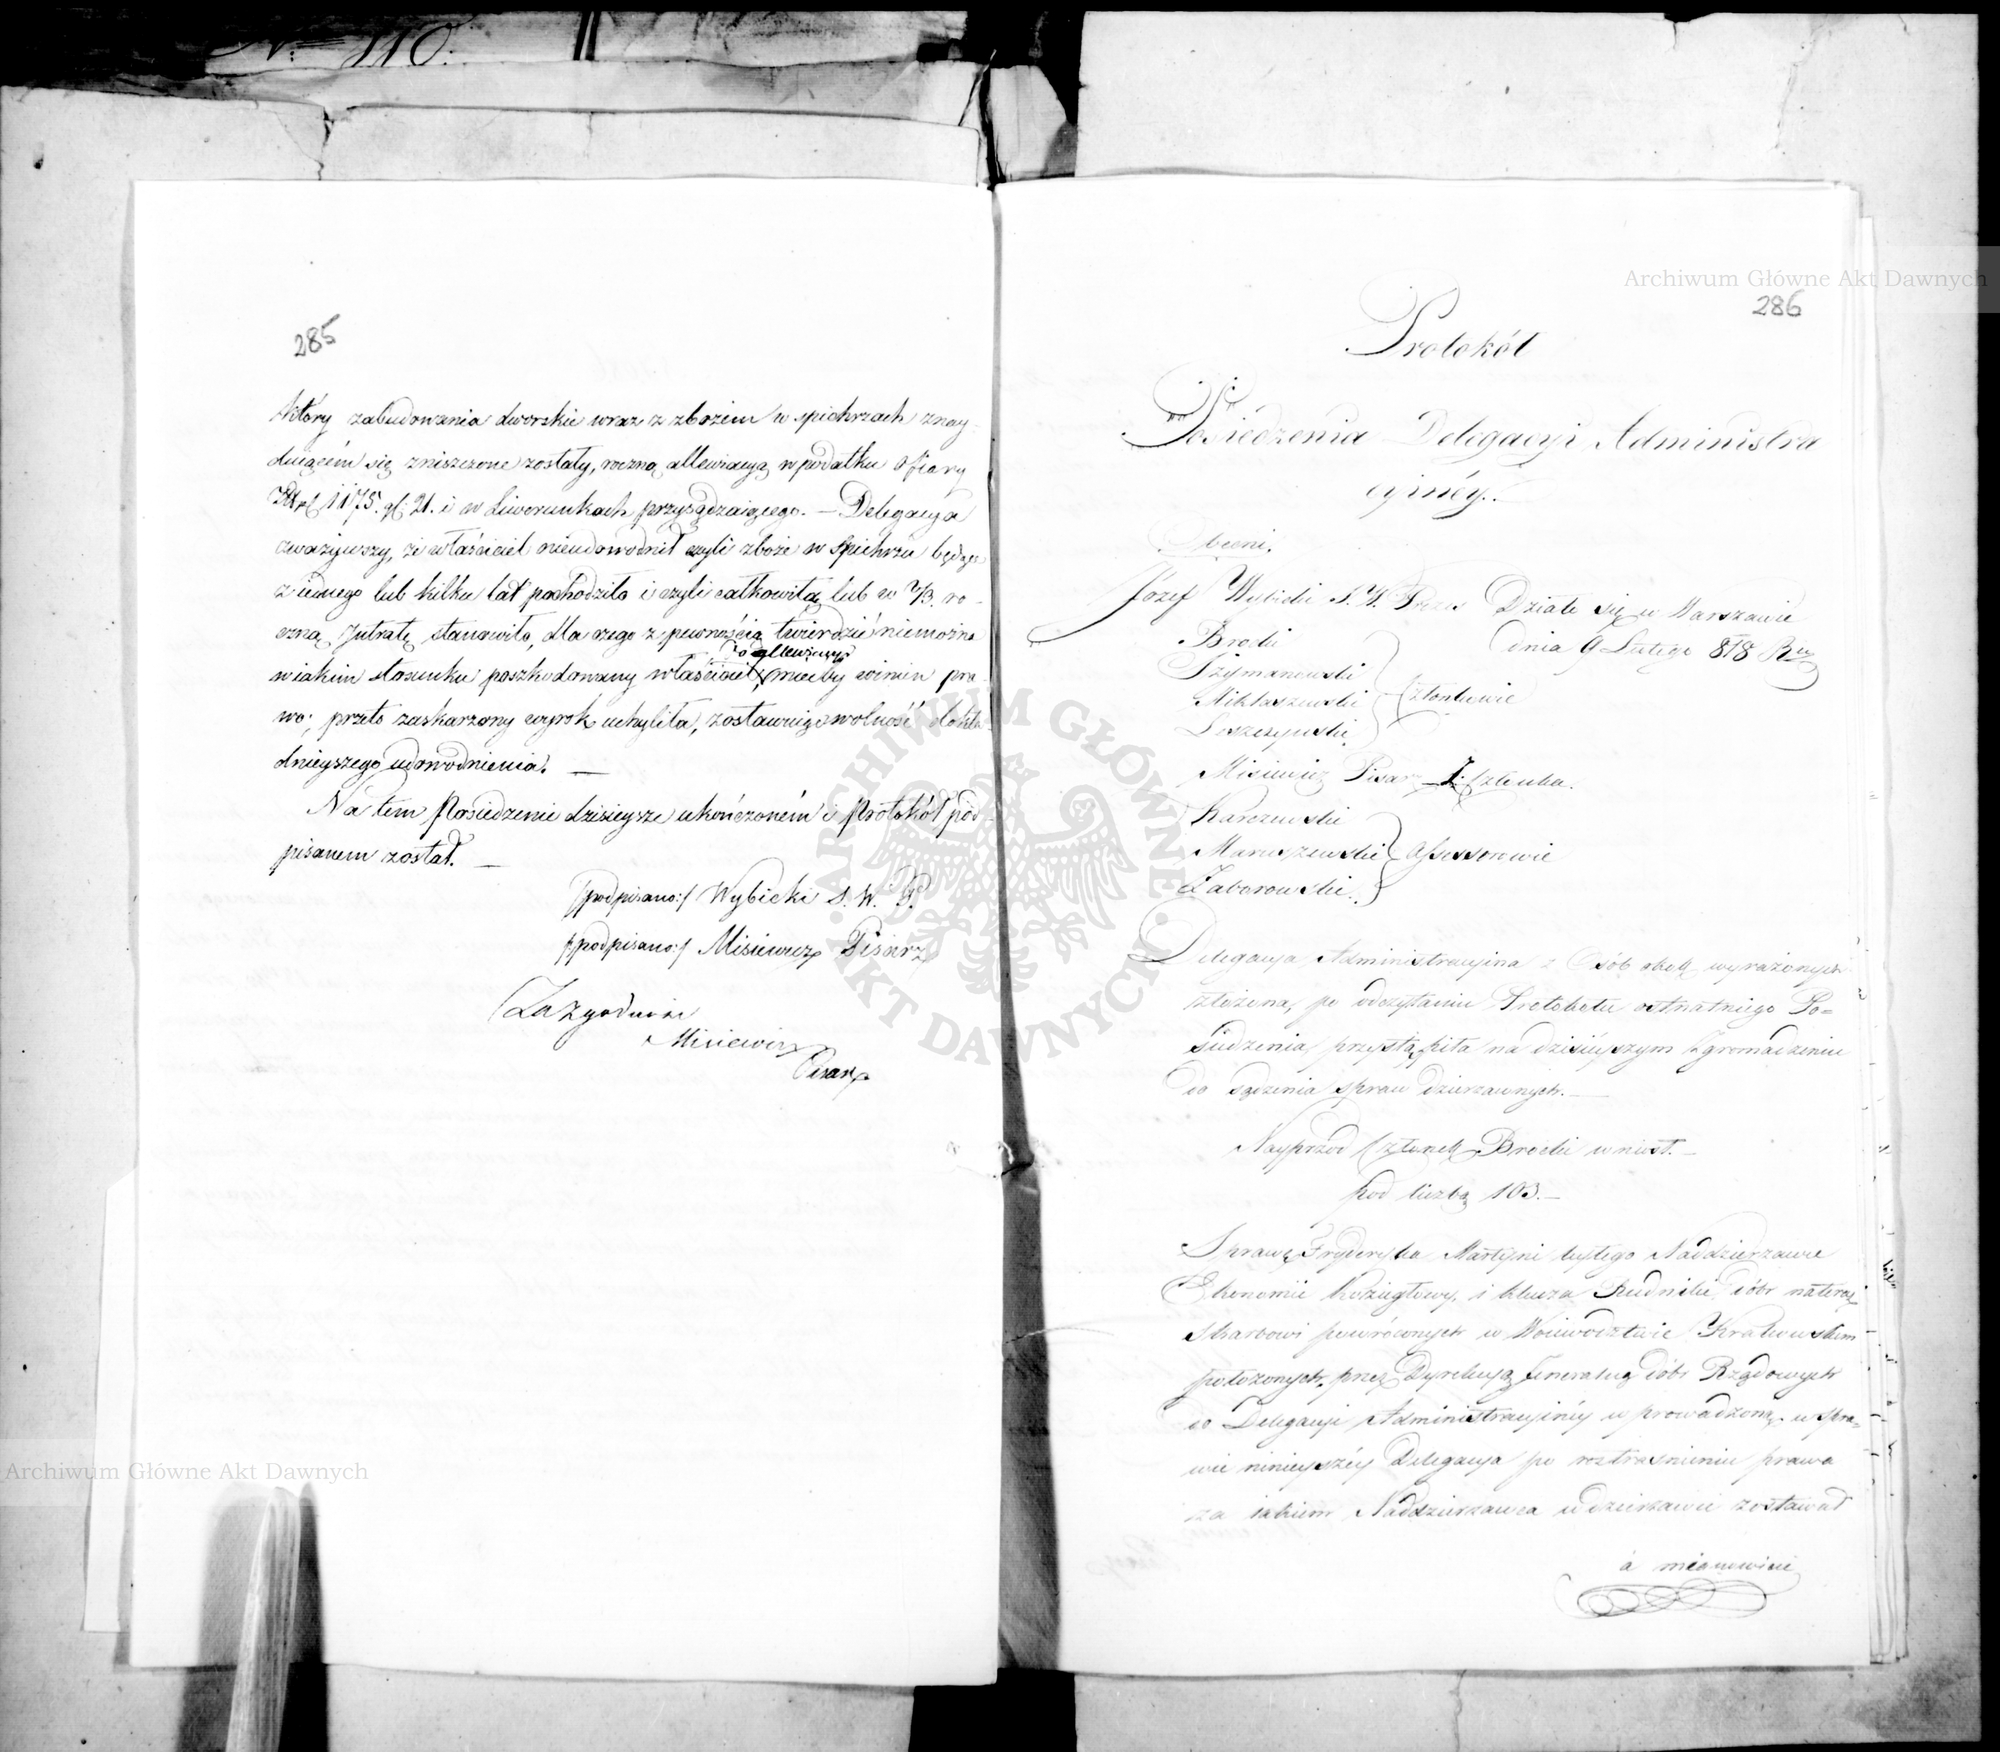 No 110.
285
który zabudowania dworskie wraz z zbożem w spichrzach znay
duiącém się zniszczone zostały, roczną allewiacyą w podatku ofiary
1175. gl. 21. i w Liwerunkach przysądzaiącego. — Delegacya
zważywszy, że właściciel nieudowodnił czyli zboże w Spichrzu będące
z iednego lub kilku lat pochodziło i czyli całkowitą lub w 2/3. ro-
czną Intratę stanowiło, dla czego z pewnością twierdzić niemożna
do allewiacyi
w iakim stosunku poszkodowany właściciel, mieć by winien pra-
wo; przeto zaskarżony wyrok uchyliła, zostawuiąc wolność dokła-
dnieyszego udowodnienia. —
Na tem Posiedzenie dzisieysze ukończoném i Protokół pod-
pisanem został. —
/podpisano:/ Wybicki S. W. P.
/:podpisano:/ Misiewicz Pisarz
Za zgodność
Misiewicz
Pisarz
286
Protokół
Posiedzenia Delegacyi Administra
cyinéy.
Obecni.
Józef Wybicki S. W. Prezes Działo się w Warszawie
Brocki dnia 9 Lutego 818 Ru
Szymanowski
Mikłaszewski Członkowie
Leszczyński
Misiewicz Pisarz Członka.
Karczewski
Maruszewski Assessorowie
Zaborowski.
Delegacya Administracyina z Osób obok wyrażonych
złożona, po odczytaniu Protokołu ostatniego Po=
siedzenia, przystąpiła na dzisieyszym Zgromadzeniu
do sądzenia spraw dzierzawnych. —
Nayprzód Członek Brocki wniosł. —
pod liczbą 103. —
Sprawę Fryderyka Martini byłego Naddzierzawcę
Ekonomii Koziegłowy, i klucza Rudniki, dóbr na teraz
skarbowi powróconych w Woiewodztwie Krakowskim
położonych, przez Dyrekcyą Generalną dóbr Rządowych
do Delegacyi Administracyinéy wprowadzoną, w spra=
wie ninieyszéy Delegacya po roztrząśnieniu prawa
za iakiem Naddzierzawca w dzierzawie zostawał
a mianowicie
Archiwum Główne Akt Dawnych
Archiwum Główne Akt Dawnych
ARCHIWUM GŁÓWNE AKT DAWNYCH